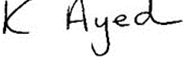 K Ayed